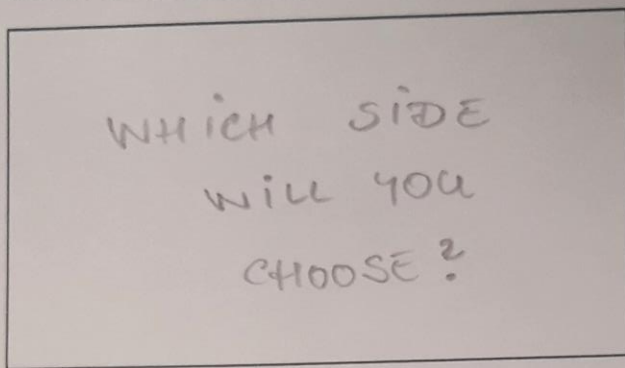 WHiCH SiDE
WiLL YOU
CHOOSE?